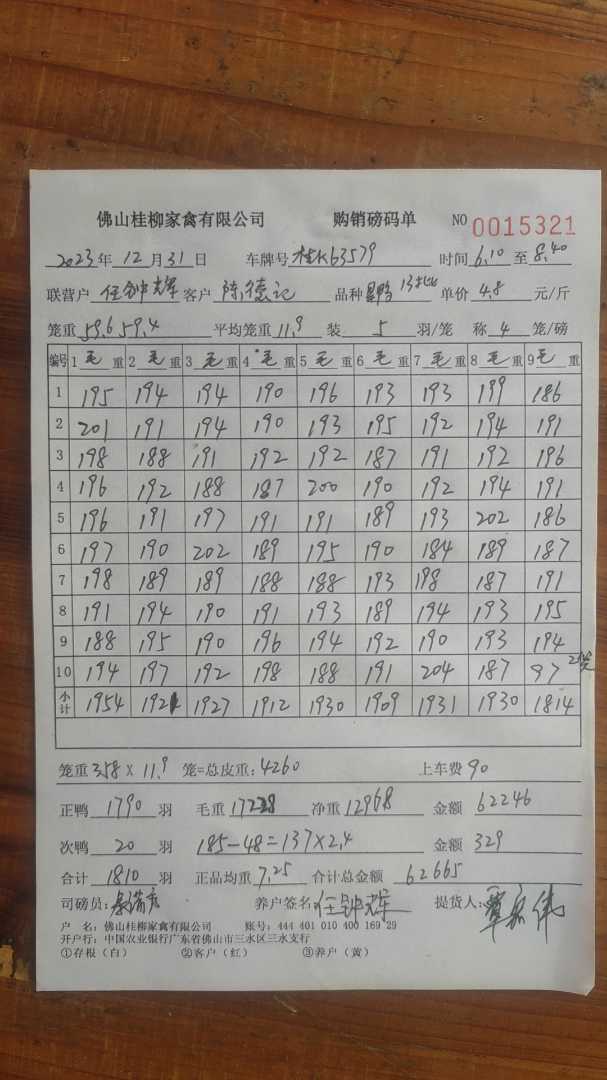 佛山桂柳家禽有限公司 购销磅码单 NO 0015321
2023年 12 月 31 日 车牌号 桂K63579 时间 6.10 至 8.40
联营户 任钟辉 客户 陈德记 品种 单价 4.8 元/斤
笼重 59.6 59.4 平均笼重 11.9 装 5 羽/笼 称 4 笼/磅
编号 1 毛 重 2 毛 重 3 毛 重 4 毛 重 5 毛 重 6 毛 重 7 毛 重 8 毛 重 9 毛 重
1 195 194 194 190 196 193 193 199 186
2 201 191 194 190 193 195 192 194 191
3 198 188 191 192 192 187 191 192 196
4 196 192 188 187 200 190 192 194 191
5 196 191 197 191 191 189 193 202 186
6 197 190 202 189 195 190 184 189 187
7 198 189 189 188 188 193 198 187 191
8 191 194 190 191 193 189 194 193 195
9 188 195 190 196 194 192 190 193 194
10 194 197 192 198 188 191 204 187 97 2笼
小计 1954 1921 1927 1912 1930 1909 1931 1930 1814
笼重 358 × 11.9 笼=总皮重: 4260 上车费 90
正鸭 1790 羽 毛重 17228 净重 12968 金额 62246
次鸭 20 羽 185-48=137×2.4 金额 329
合计 1810 羽 正品均重 7.25 合计总金额 62665
司磅员: 养户签名: 任钟辉 提货人:
户 名: 佛山桂柳家禽有限公司 账号: 444 401 010 400 169 29
开户行: 中国农业银行广东省佛山市三水区三水支行
①存根(白) ②客户(红) ③养户(黄)